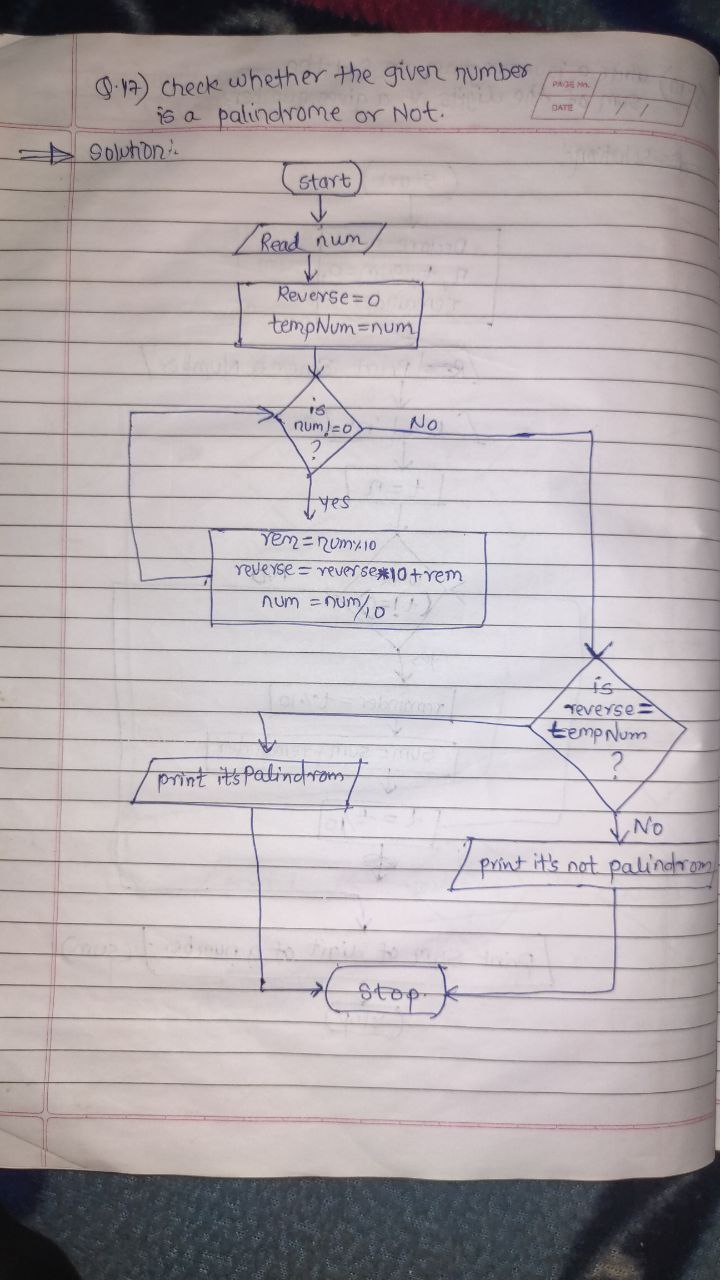 Q.17) check whether the given number
is a palindrome or Not.
PAGE No.
DATE / /
Solution:
start
Read num
Reverse=0
tempNum=num
is
num!=0
?
No
yes
rem=num%10
reverse = reverse*10+rem
num =num/10
is
reverse=
tempNum
?
print it's Palindrom
No
print it's not palindrom
Stop.